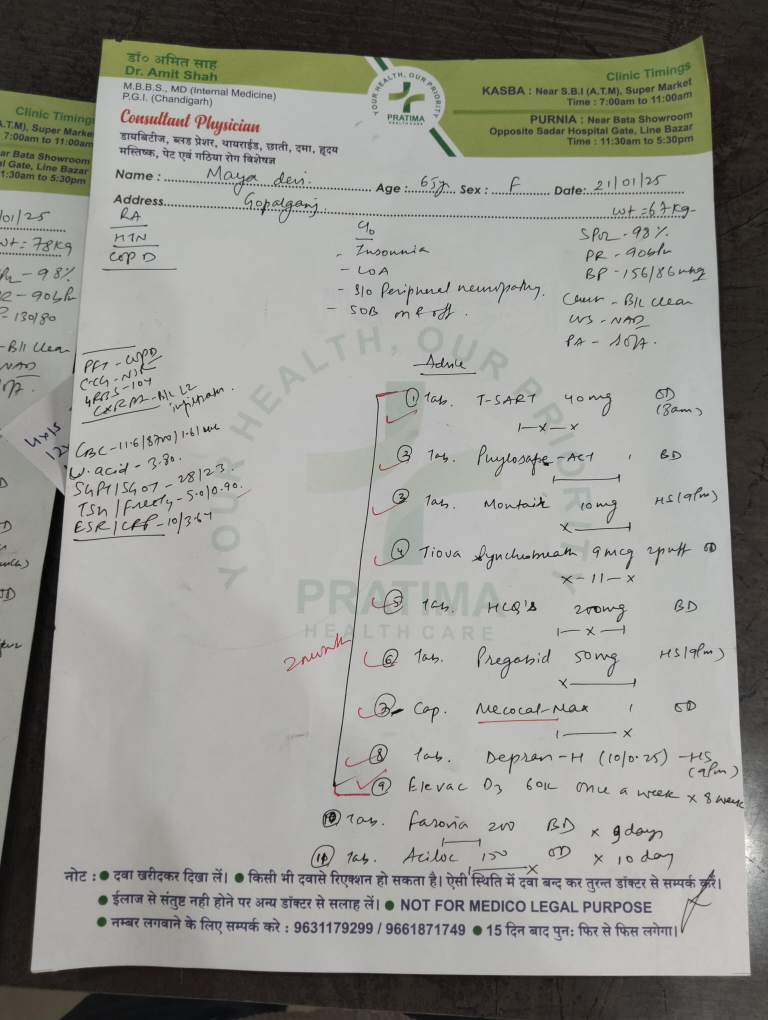 डॉ० अमित साह
Dr. Amit Shah
M.B.B.S., MD (Internal Medicine)
P.G.I. (Chandigarh)
Consultant Physician
डायबिटीज, ब्लड प्रेशर, थायराईड, छाती, दमा, हृदय
मस्तिष्क, पेट एवं गठिया रोग विशेषज्ञ
YOUR HEALTH, OUR PRIORITY
PRATIMA
HEALTH CARE
Clinic Timings
KASBA : Near S.B.I (A.T.M), Super Market
Time : 7:00am to 11:00am
PURNIA : Near Bata Showroom
Opposite Sadar Hospital Gate, Line Bazar
Time : 11:30am to 5:30pm
Name : Maya devi Age : 65y Sex : F Date: 21/01/25
Address Gopalganj wt = 67 Kg
RA
HTN
COPD
C/o
- Insomnia
- LOA
- S/o Peripheral neuropathy.
- SOB on & off.
SPO2 - 98%
PR - 90b/m
BP - 156/86 mmhg
Chest - B/L clear
NAD
PA - Soft
PFT - COPD
RBS - 104
CBC - 11.6/8700/1.61
U. acid - 3.80.
SGPT/SGOT - 28/23.
TSH / Free T4 - 5.0/0.90.
ESR/CRP - 10/3.64
Advice
① Tab. T-SART 40mg OD (8am)
1-x-x
② Tab. Phylosafe-ACT 1 BD
③ Tab. Montair 10mg HS (9pm)
④ Tiova Synchrobreath 9mcg 2puff OD
x-11-x
⑤ Tab. HCQ'S 200mg BD
1-x-1
⑥ Tab. Pregabid 50mg HS (9pm)
Cap. Mecocal-Max 1 OD
⑧ Tab. Depran-H (10/0.25) - HS (9pm)
⑨ Elevac D3 60K once a week x 8 week
2 week
⑩ Tab. Farovia 200 BD x 9 days
⑪ Tab. Aciloc 150 OD x 10 day
YOUR HEALTH, OUR PRIORITY
PRATIMA
HEALTH CARE
नोट : ● दवा खरीदकर दिखा लें। ● किसी भी दवासे रिएक्शन हो सकता है। ऐसी स्थिति में दवा बन्द कर तुरन्त डॉक्टर से सम्पर्क करें।
● ईलाज से संतुष्ट नही होने पर अन्य डॉक्टर से सलाह लें। ● NOT FOR MEDICO LEGAL PURPOSE
● नम्बर लगवाने के लिए सम्पर्क करे : 9631179299 / 9661871749 ● 15 दिन बाद पुन: फिर से फिस लगेगा।
Clinic Timings
A.T.M), Super Market
7:00am to 11:00am
ar Bata Showroom
l Gate, Line Bazar
1:30am to 5:30pm
/01/25
wt = 78Kg
- 98%
- 90b/m
- 130/80
- B/L clear
NAD